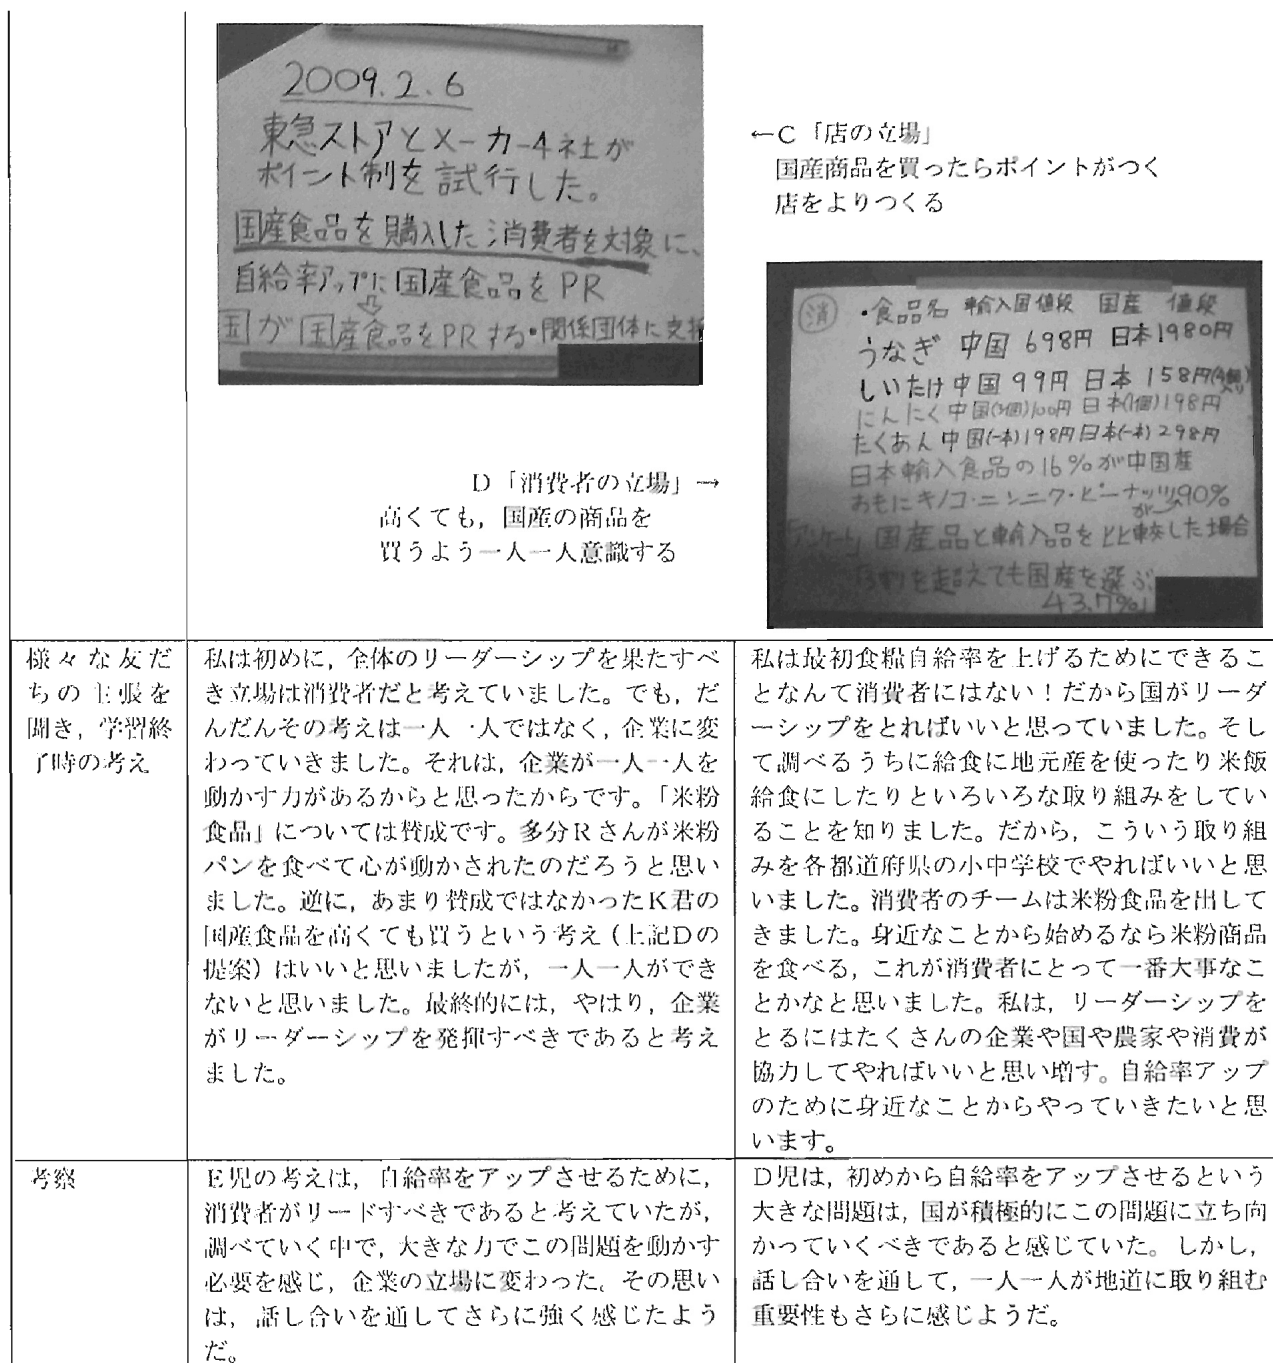 2009.2.6
東急ストアとメーカー4社が
ポイント制を試行した。
国産食品を購入した消費者を対象に、
自給率アップに国産食品をPR
⇩
国が国産食品をPRする・関係団体に支援
←C「店の立場」
国産商品を買ったらポイントがつく
店をよりつくる
消
・食品名 輸入国値段 国産 値段
うなぎ 中国 698円 日本1980円
しいたけ 中国 99円 日本 158円(4個入り)
にんにく 中国(3個)100円 日本(1個)198円
たくあん 中国(一本)198円 日本(一本)298円
日本輸入食品の16%が中国産
おもにキノコ・ニンニク・ピーナッツが90%
アンケート 国産品と輸入品をヒヒ較した場合
「3割を超えても国産を選ぶ
43.7%」
D「消費者の立場」→
高くても，国産の商品を
買うよう一人一人意識する
様々な友だ
ちの主張を
聞き，学習終
了時の考え
私は初めに，全体のリーダーシップを果たすべ
き立場は消費者だと考えていました。でも，だ
んだんその考えは一人一人ではなく，企業に変
わっていきました。それは，企業が一人一人を
動かす力があるからと思ったからです。「米粉
食品」については賛成です。多分Rさんが米粉
パンを食べて心が動かされたのだろうと思い
ました。逆に，あまり賛成ではなかったK君の
国産食品を高くても買うという考え（上記Dの
提案）はいいと思いましたが，一人一人ができ
ないと思いました。最終的には，やはり，企業
がリーダーシップを発揮すべきであると考え
ました。
私は最初食糧自給率を上げるためにできるこ
となんて消費者にはない！だから国がリーダ
ーシップをとればいいと思っていました。そし
て調べるうちに給食に地元産を使ったり米飯
給食にしたりといろいろな取り組みをしてい
ることを知りました。だから，こういう取り組
みを各都道府県の小中学校でやればいいと思
いました。消費者のチームは米粉食品を出して
きました。身近なことから始めるなら米粉商品
を食べる，これが消費者にとって一番大事なこ
とかなと思いました。私は，リーダーシップを
とるにはたくさんの企業や国や農家や消費が
協力してやればいいと思い増す。自給率アップ
のために身近なことからやっていきたいと思
います。
考察
E児の考えは，自給率をアップさせるために，
消費者がリードすべきであると考えていたが，
調べていく中で，大きな力でこの問題を動かす
必要を感じ，企業の立場に変わった。その思い
は，話し合いを通してさらに強く感じたよう
だ。
D児は，初めから自給率をアップさせるという
大きな問題は，国が積極的にこの問題に立ち向
かっていくべきであると感じていた。しかし，
話し合いを通して，一人一人が地道に取り組む
重要性もさらに感じようだ。